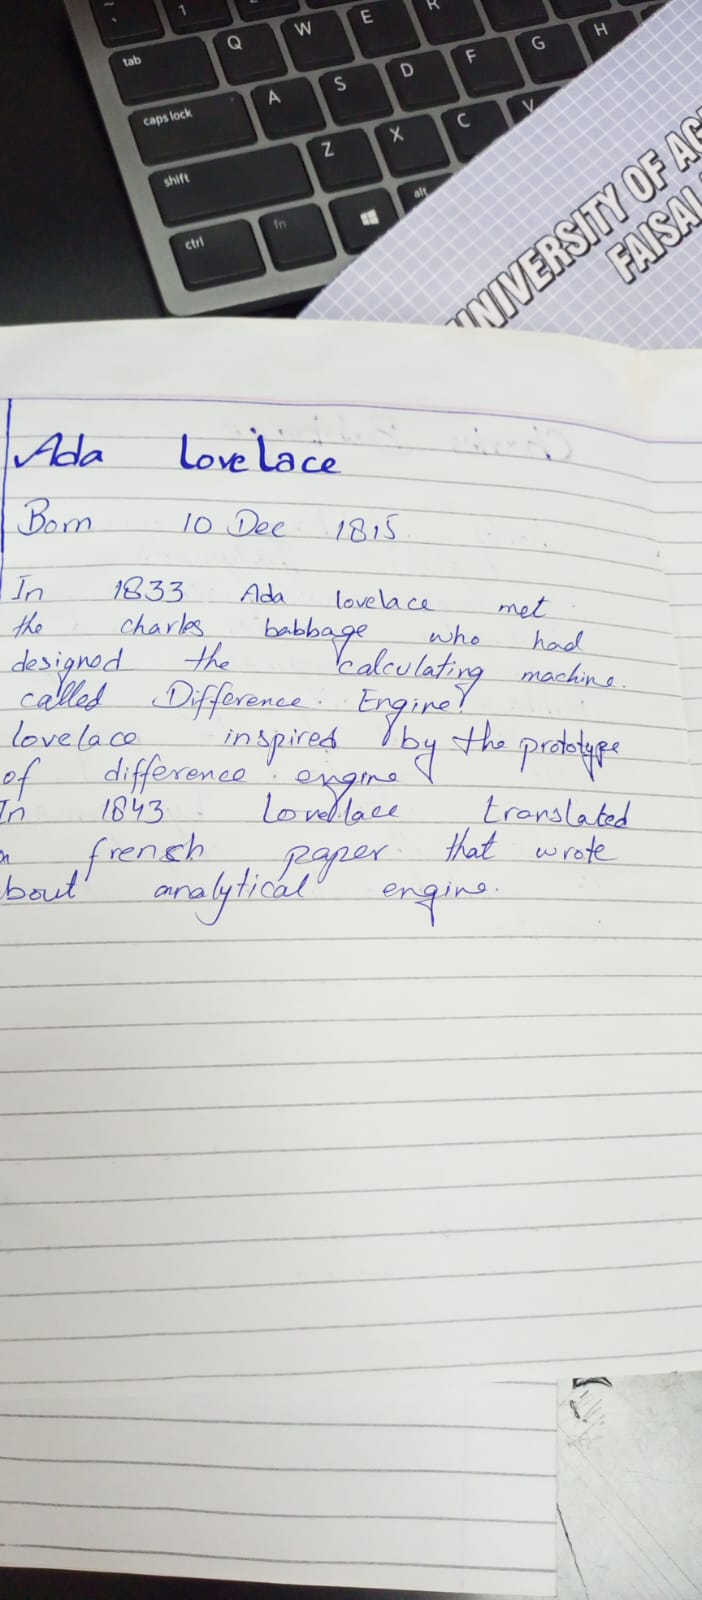 ~
`
1
tab
Q
W
E
R
caps lock
A
S
D
F
G
H
shift
Z
X
C
V
ctrl
fn
alt
UNIVERSITY OF AG
FAISAL
Ada Lovelace
Born 10 Dec 1815
In 1833 Ada lovelace met
the charles babbage who had
designed the calculating machine.
called Difference. Engine!
lovelace inspired by the prototype
of difference engine
In 1843 Lovellace translated
french paper that wrote
bout analytical engine.